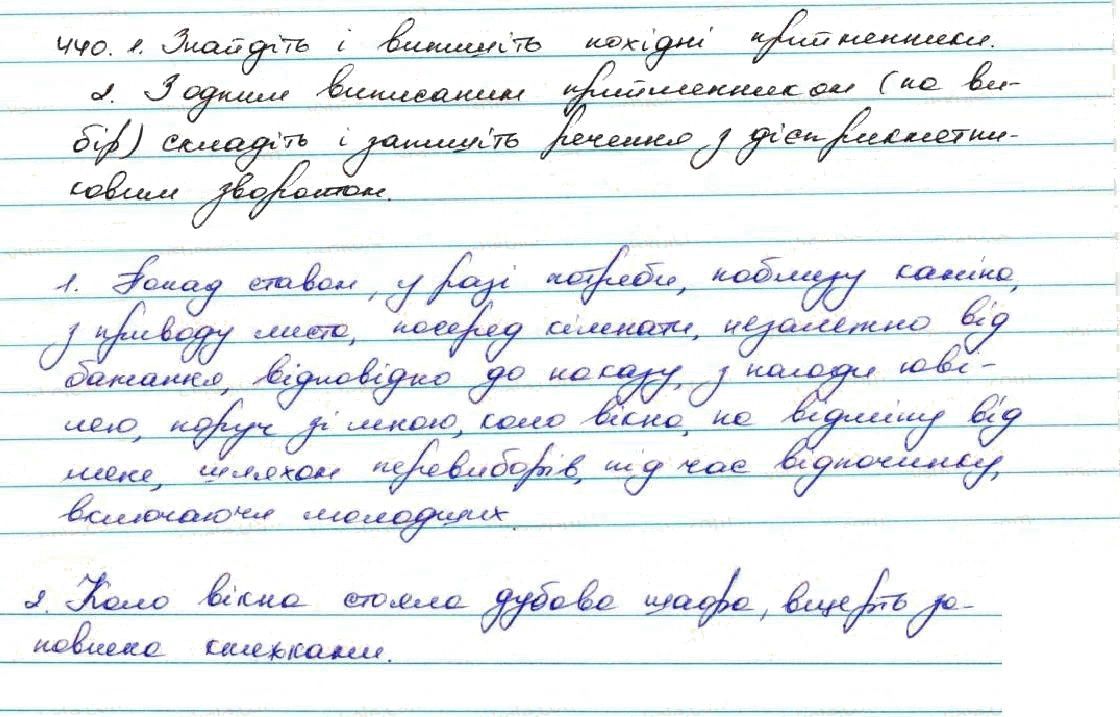 440. 1. Знайдіть і випишіть похідні прийменники.
2. З одним виписаним прийменником (на ви-
бір) складіть і запишіть речення з дієприкметни-
ковим зворотом.
1. Понад ставом, у разі потреби, поблизу каміна,
з приводу листа, посеред кімнати, незалежно від
бажання, відповідно до наказу, з нагоди юві-
лею, поруч зі мною, коло вікна, на відміну від
мене, шляхом перевиборів, під час відпочинку,
включаючи молодших.
2. Коло вікна стояла дубова шафа, вщерть за-
повнена книжками.